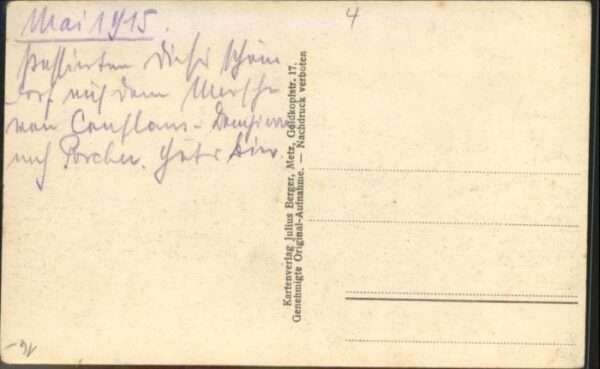 Mai 1915.
passierten dieses schöne
Dorf auf dem Marsche
von Conflans-
nach Porcher.
4
Kartenverlag Julius Berger, Metz, Goldkopfstr. 17.
Genehmigte Original-Aufnahme. — Nachdruck verboten